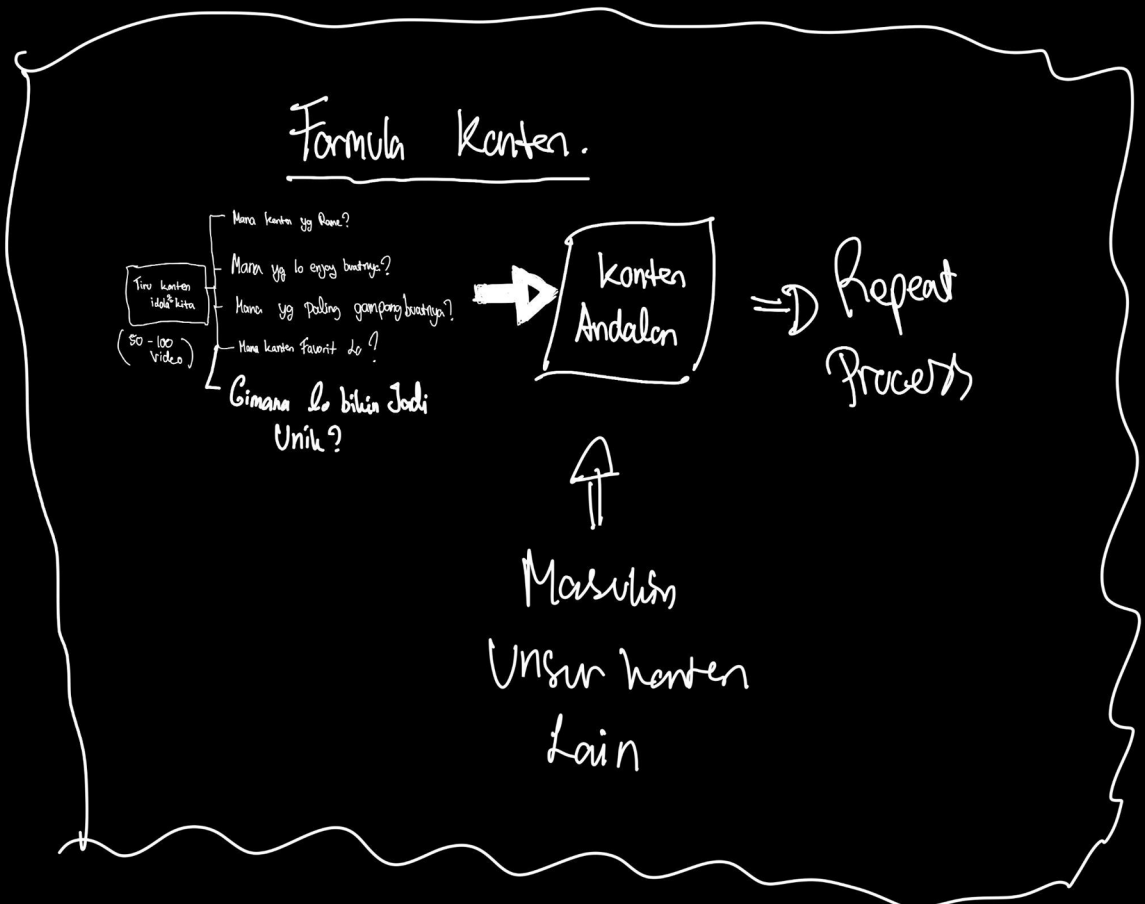 Formula Konten.
Tiru konten
idola² kita
(50 - 100
Video)
Mana konten yg Rame?
Mana yg lo enjoy buatnya?
Mana yg paling gampang buatnya?
Mana konten Favorit Lo?
Gimana Lo bikin Jadi
Unik?
Konten
Andalan
Repeat
Process
Masukin
Unsur konten
Lain